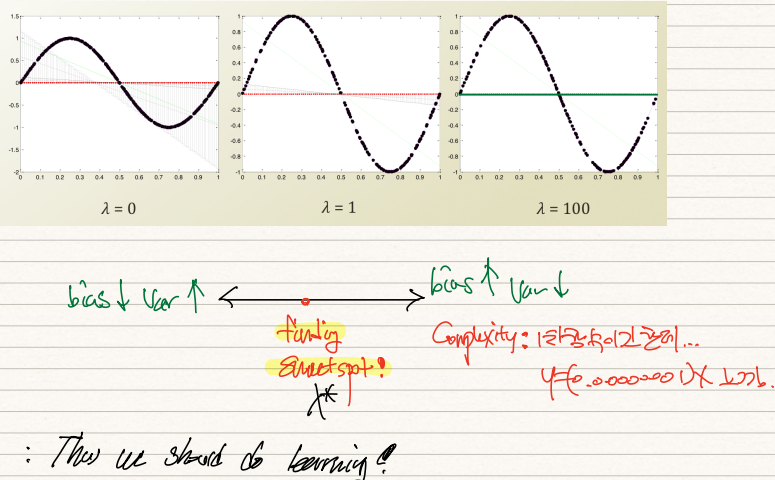 1.5
1
0.5
0
-0.5
-1
-1.5
-2
0 0.1 0.2 0.3 0.4 0.5 0.6 0.7 0.8 0.9 1
1
0.8
0.6
0.4
0.2
0
-0.2
-0.4
-0.6
-0.8
-1
0 0.1 0.2 0.3 0.4 0.5 0.6 0.7 0.8 0.9 1
1
0.8
0.6
0.4
0.2
0
-0.2
-0.4
-0.6
-0.8
-1
0 0.1 0.2 0.3 0.4 0.5 0.6 0.7 0.8 0.9 1
λ = 0
λ = 1
λ = 100
bias ↓ Var ↑
bias ↑ Var ↓
finding
sweet spot!
Complexity: 1차
y=(0.00000001)X
: Thus we should do learning!